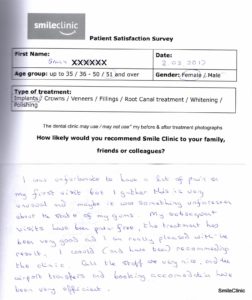 smileclinic
Patient Satisfaction Survey
First Name:
XXXXXX
Date:
2.03.2012
Age group: up to 35 / 36 - 50 / 51 and over
Gender: Female / Male
Type of treatment:
Implants / Crowns / Veneers / Fillings / Root Canal treatment / Whitening /
Polishing
The dental clinic may use / may not use* my before & after treatment photographs
How likely would you recommend Smile Clinic to your family,
friends or colleagues?
I was unfortunate to have a bit of pain on
my first visit but I gather this is very
unusual and maybe it was something unforeseen
about the state of my gums. My subsequent
visits have been pain free, the treatment has
been very good and I am really pleased with the
result. I would (and have been) recommending
the clinic. All the staff are very nice, and the
airport transfers and booking accomodation have
been very efficient.
SmileClinic